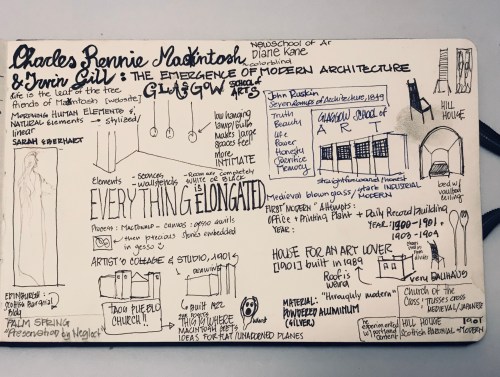 Newschool of Ar
Diane Kane
colorblind
Charles Rennie Mackintosh
& Irvin Gill: THE EMERGENCE OF MODERN ARCHITECTURE
life is the leaf of the tree
friends of Mackintosh [website]
GLASGOW SCHOOL of ARTS
Morphing Human Elements &
NATURAL Elements → stylized/
linear
SARAH
low hanging
lamps/bulbs
makes large
spaces feel
more
INTIMATE
John Ruskin
Seven Lamps of Architecture, 1849
Truth
Beauty
Life
Power
Honesty
Sacrifice
Memory
GLASGOW SCHOOL of
ART
straightforward/honest
HILL
HOUSE
bed w/ vaulted
ceiling
Elements
Rooms are completely
WHITE OR BLACK
EVERYTHING IS ELONGATED
Medieval blown glass/stark INDUSTRIAL
MODERN
FIRST "MODERN" Attempts:
Office + Printing Plant + Daily Record building
YEAR:
YEAR: 1900-1901 +
1903-1904
Process: MacDonald - canvas: gesso swirls
then precious stones embedded
in gesso
ARTIST'S COTTAGE & STUDIO, 1901
DRAWING
TAOS PUEBLO
CHURCH!!
Built 1992
HOUSE FOR AN ART LOVER
[1901] built in 1989
Roof is
wang
"thoroughly modern"
very BAUHAUS
MATERIAL:
POWDERED ALUMINUM
(SILVER)
Church of the
Class / trusses cross
MEDIEVAL/JAPANESE
He experimented
w/ portland
cement
HILL HOUSE 1901
Scottish Baronial → Modern
EDINBURGH:
Scottish Baronial
Bldg
PALM SPRING
"Preservation by Neglect"
THIS IS WHERE
MACINTOSH GETS
IDEAS FOR FLAT/UNADORNED PLANES